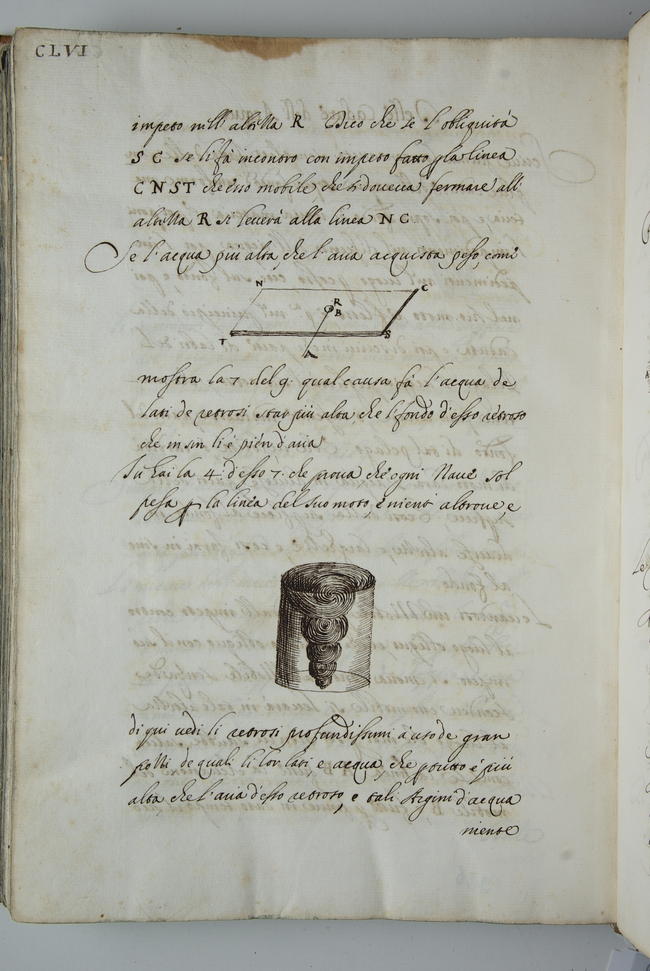 CLVI
impeto nell' altezza R Dico che se l'obliquità
S C se li fà incontro con impeto fatto p la linea
C N S T che esso mobile che si doueua fermare all'
altezza R si leuerà alla linea N C
Se l'acqua più alta, che l'aria acquista peso, come
N
C
R
B
T
S
A
mostra la 7. del 9. qual causa fà l'acqua de
lati de retrosi star più alta, che 'l fondo d'esso retroso
che insin li è pien d'aria
Tu hai la 4. d'esso 7. che proua, che ogni Graue sol
pesa p la linea del suo moto, e nient' altroue, e
di qui uedi li retrosi profundissimi à uso de gran
pozzi de quali li lor lati, e acqua, che pontto è più
alta, che l'aria d'esso retroso, e tali Argini d'acqua
niente